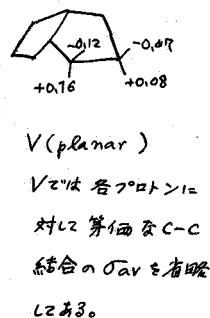 -0.12
-0.07
+0.16
+0.08
V (planar)
Vでは各プロトンに
対して等価なC-C
結合のσavを省略
してある。